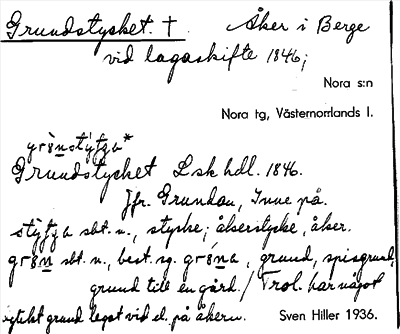 Grundstycket. † Åker i Berge
vid lagaskifte 1846;
Nora s:n
Nora tg, Västernorrlands l.
Grundstycket Lsk hdl. 1846.
Jfr. Grundan, Inne på.
sbt. n., stycke; åkerstycke, åker.
sbt. n., best. sg. , grund, spisgrund,
grund till en gård. / Trol. har något
grund legat vid el. på åkern.
Sven Hiller 1936.